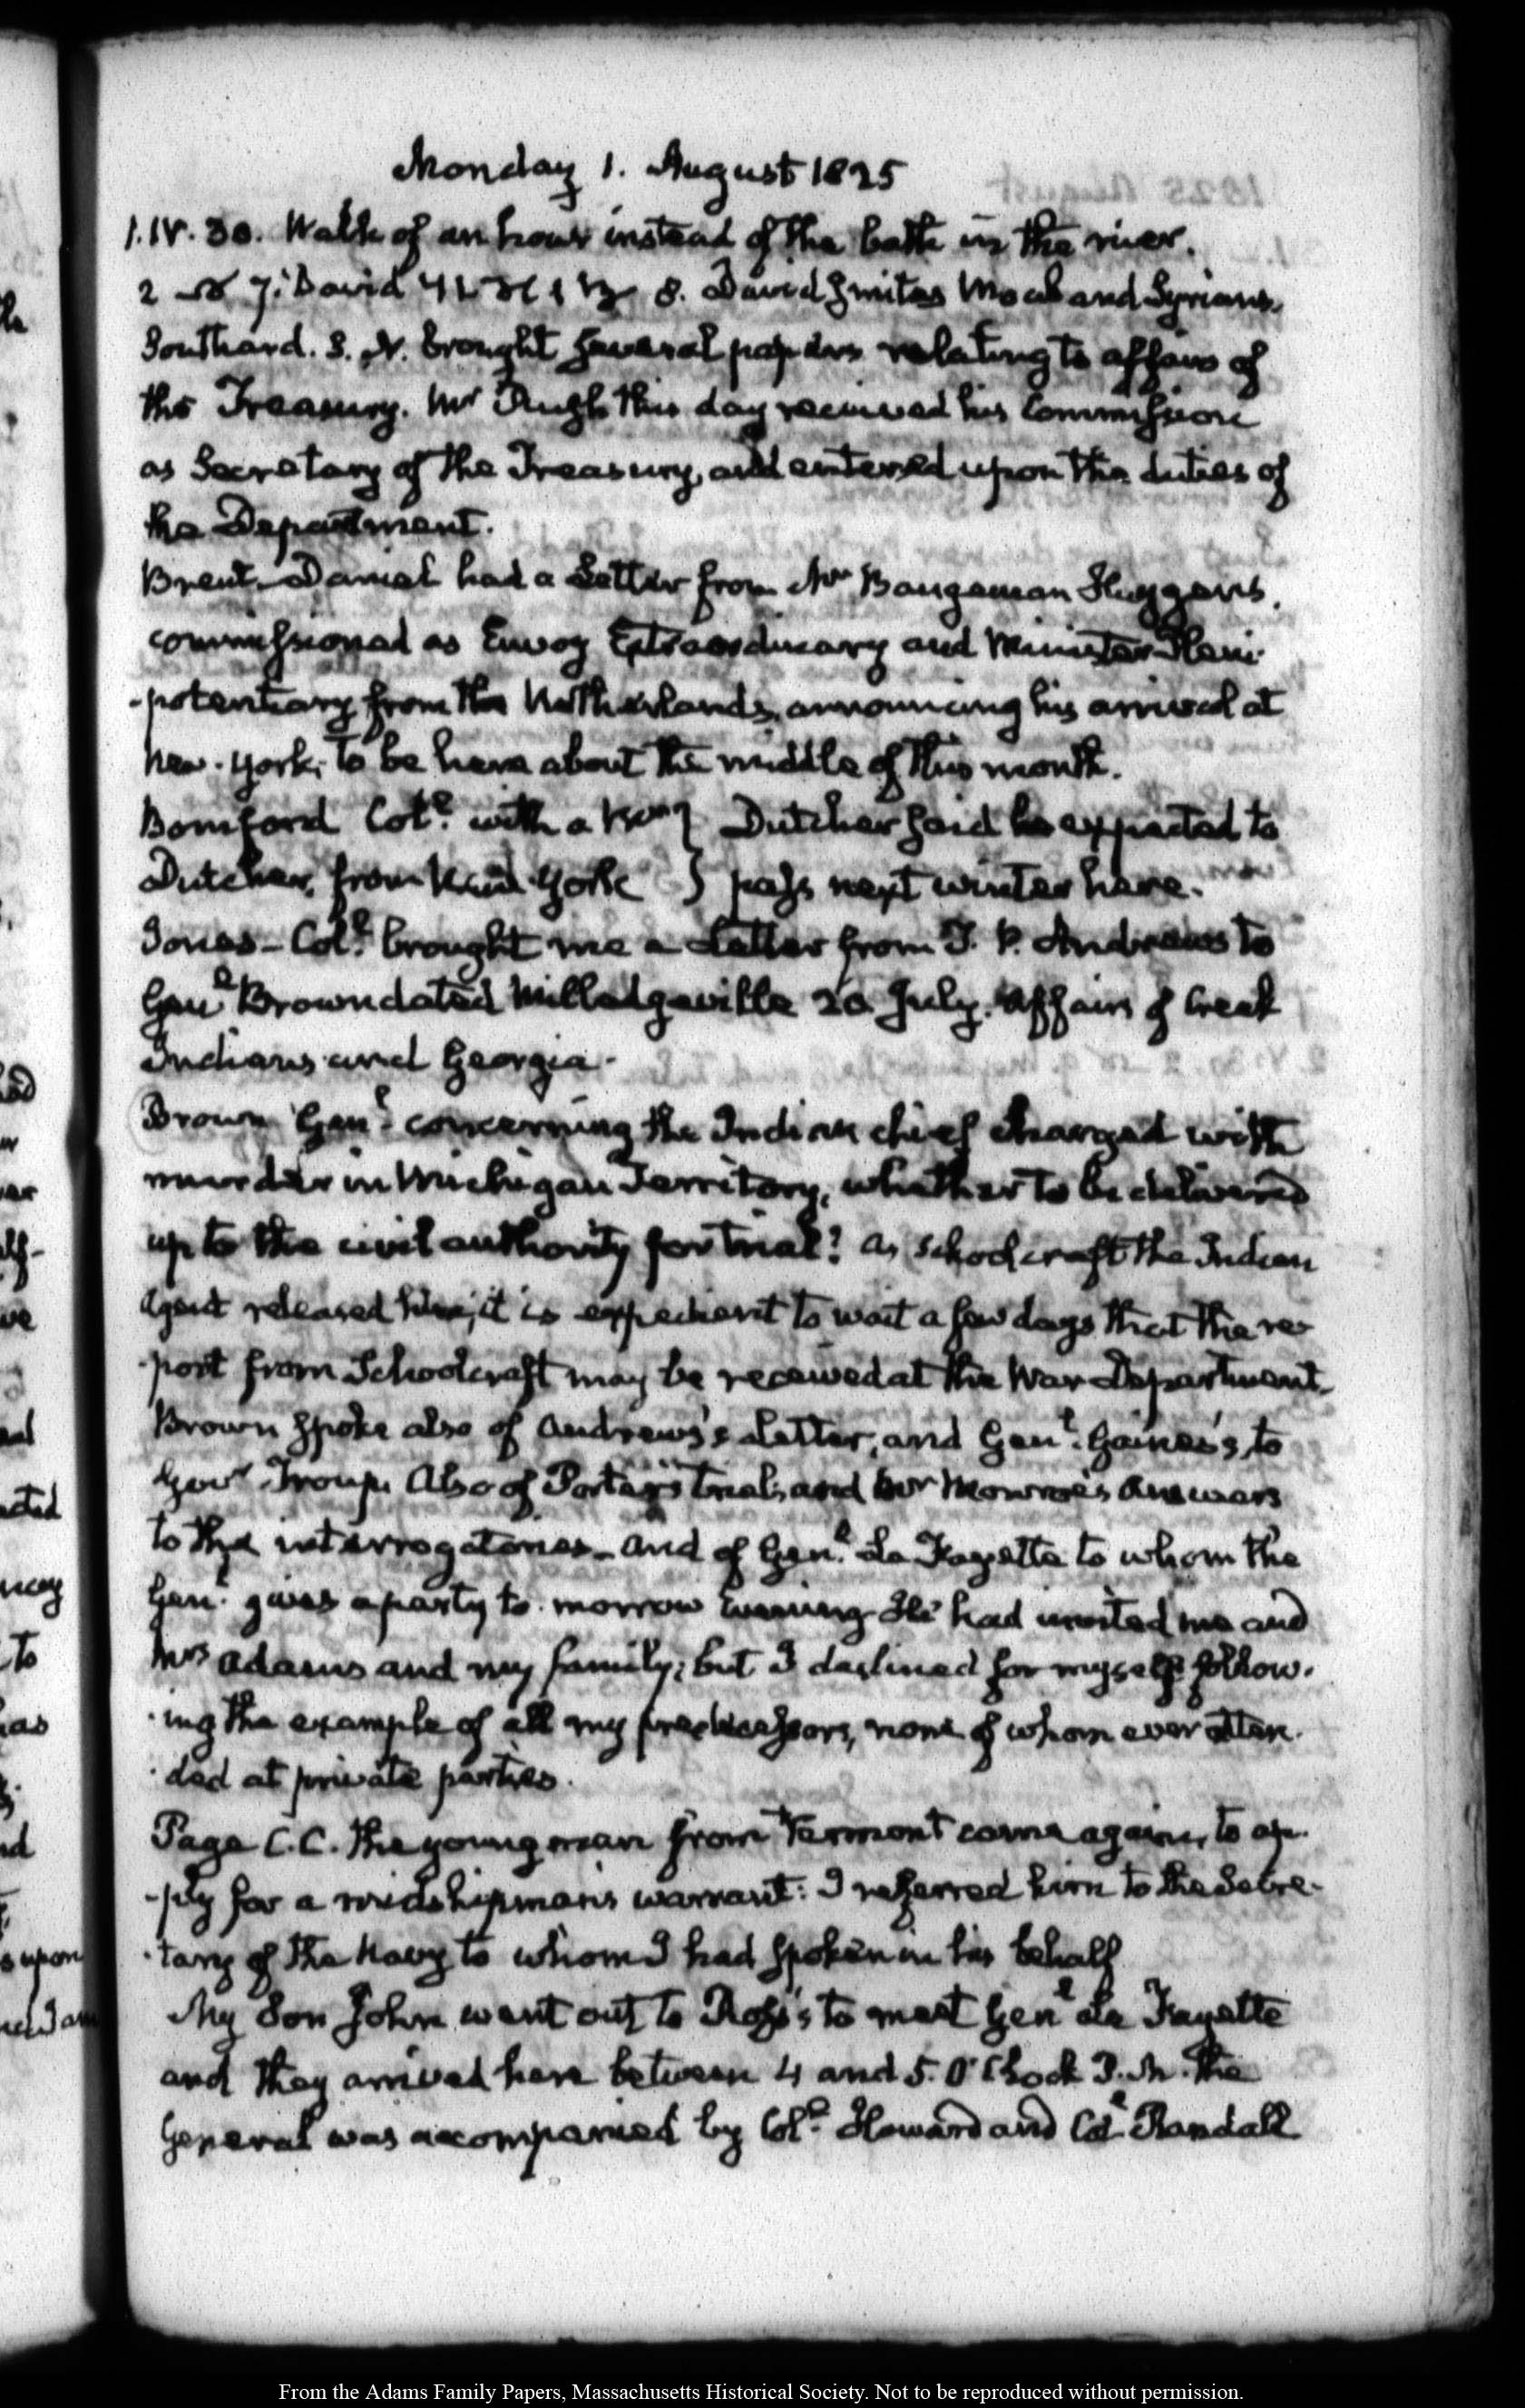 Monday 1. August 1825
1. IV. 30. Walk of an hour instead of the bath in the river.
2 7. David 8. David smites Moab and Syrians.
Southard. S. N. brought several papers relating to affairs of
the Treasury. Mr Rush this day received his Commission
as Secretary of the Treasury, and entered upon the duties of
the Department.
Brent. Daniel had a Letter from Mr Bangeman Huygens,
commissioned as Envoy Extraordinary and Minister Pleni-
-potentiary from the Netherlands, announcing his arrival at
New-York, to be here about the middle of this month.
Bomford Coll. with a } Dutcher said he expected to
Dutcher, from New York } pass next winter here.
Jones—Coll. brought me a Letter from T. P. Andrews to
Genl Brown dated Milledgeville 20 July. Affairs of Creek
Indians and Georgia.
Brown Genl. concerning the Indian chief charged with
murder in Michigan Territory, whether to be delivered
up to the civil authority for trial? As Schoolcraft the Indian
Agent released him, it is expedient to wait a few days that the re-
-port from Schoolcraft may be received at the War Department.
Brown spoke also of Andrews's Letter, and Genl. Gaines's, to
Govr Troup. Also of Porter's trial, and Mr Monroe's Answers
to the interrogatories—and of Genl. La Fayette to whom the
Genl. gives a party to-morrow Evening He had invited me and
Mrs Adams and my family; but I declined for myself follow-
-ing the example of all my predecessors, none of whom ever atten-
-ded at private parties.
Page C.C. The young man from Vermont came again, to ap-
-ply for a midshipman's warrant: I referred him to the Secre-
-tary of the Navy to whom I had spoken in his behalf
My Son John went out to Ross's to meet Genl La Fayette
and they arrived here between 4 and 5. O'Clock P.M. The
General was accompanied by Coll. Howard and Coll. Randall